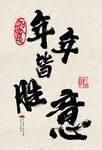 年年
皆
胜意